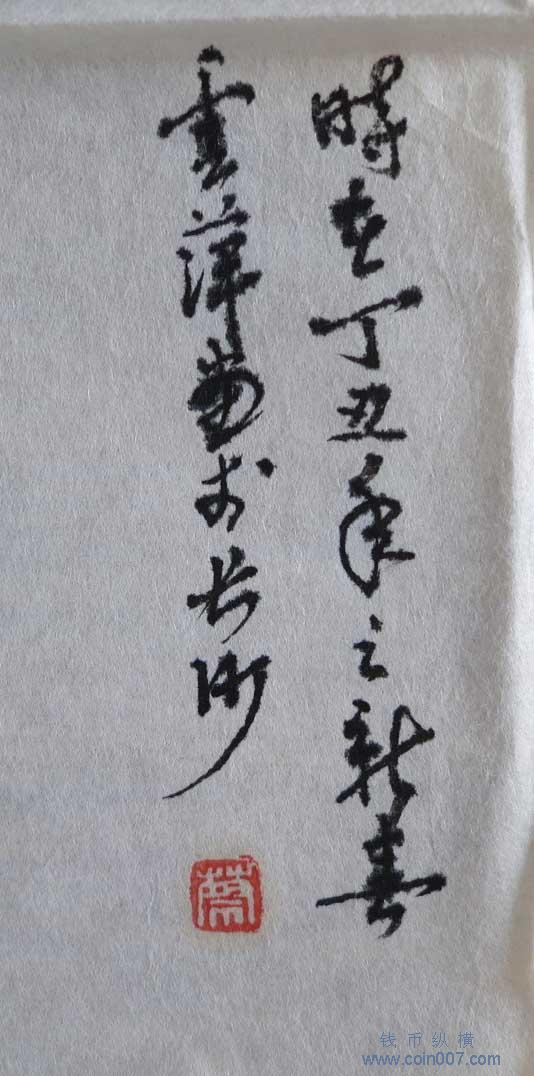 時在丁丑年之新春
雲萍畫於長沙
蔡
钱币纵横
www.coin007.com